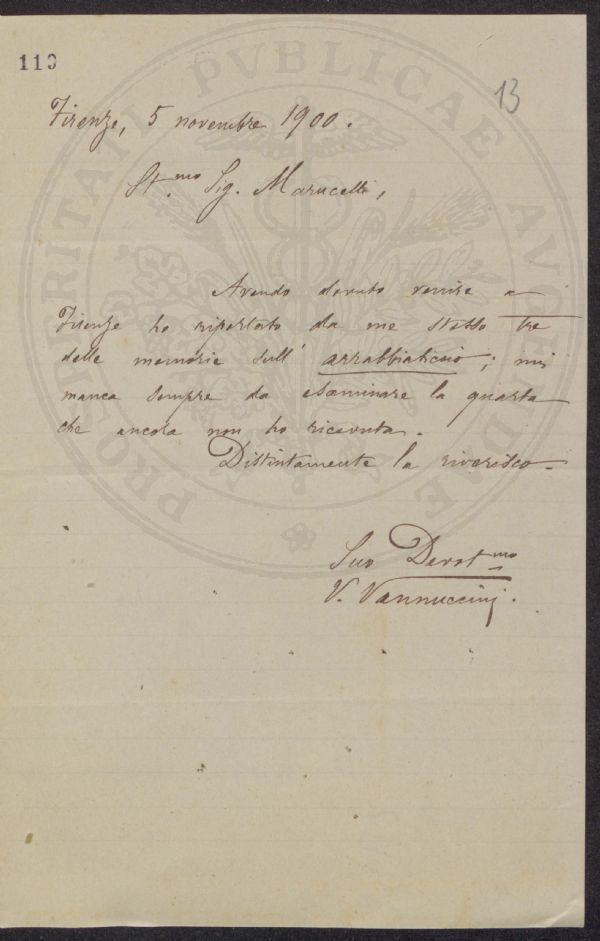 110
13
Firenze, 5 novembre 1900.
St.mo Sig. Marucelli,
Avendo dovuto venire a
Firenze ho riportato da me stesso tre
delle memorie sull' arrabbiaticcio; mi
manca sempre da esaminare la quarta
che ancora non ho ricevuta.
Distintamente la riverisco.
Suo Devot.mo
V. Vannuccini.
PROSPERITATI PVBLICAE AVGENDAE